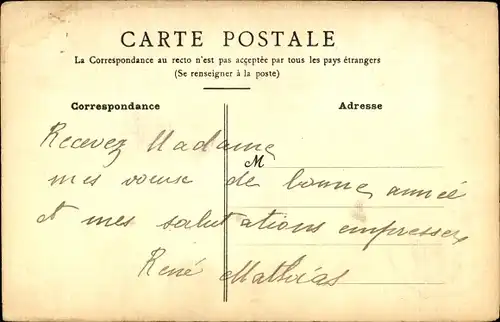 CARTE POSTALE
La Correspondance au recto n'est pas acceptée par tous les pays étrangers
(Se renseigner à la poste)
Correspondance Adresse
Recevez Madame
M
mes voeux de bonne année
et mes salutations empressées
René Mathias